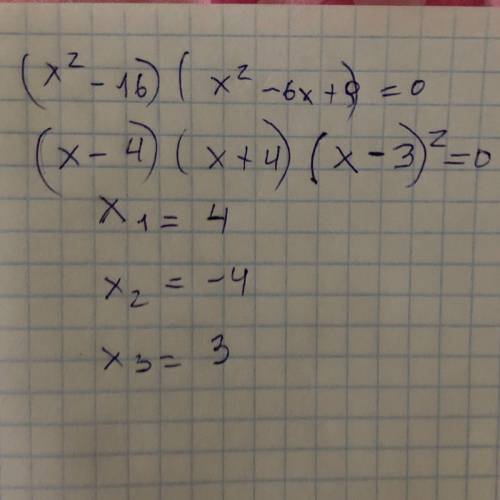 (x² - 16) (x² - 6x + 9) = 0
(x - 4) (x + 4) (x - 3)² = 0
x₁ = 4
x₂ = -4
x₃ = 3